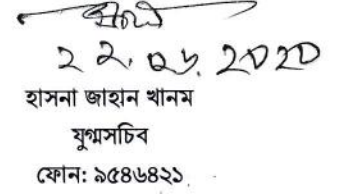 ২২.০৬.২০২০
হাসনা জাহান খানম
যুগ্মসচিব
ফোন: ৯৫৪৬৪২১